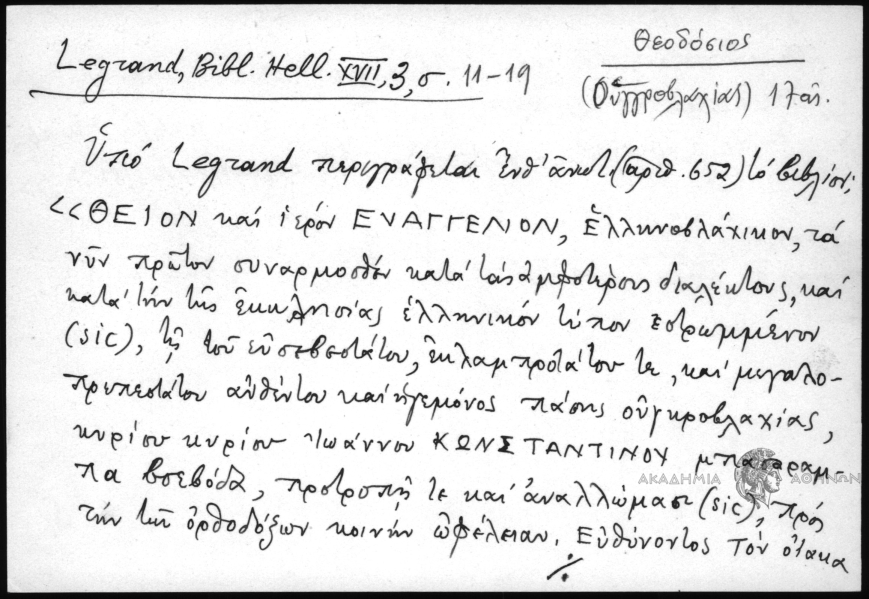 Θεοδόσιος
Legrand, Bibl. Hell. XVII, 3, σ. 11-19
(Οὑγγροβλαχίας) 17 αἰ.
Ὑπό Legrand περιγράφεται ἔνθ' ἀνωτ. (ἀριθ. 652) τό βιβλίον:
<<ΘΕΙΟΝ καί ἱερόν ΕΥΑΓΓΕΛΙΟΝ, Ἑλληνοβλάχικον, τά
νῦν πρῶτον συναρμοσθέν κατά τάς ἀμφοτέρους διαλέκτους, καί
κατά τήν τῆς ἐκκλησίας ἑλληνικόν τύπον ἐστρωμμένον
(sic), τῇ τοῦ εὐσεβεστάτου, ἐκλαμπροτάτου τε, καί μεγαλο-
πρεπεστάτου αὐθέντου καί ἡγεμόνος πάσης οὑγκροβλαχίας,
κυρίου κυρίου Ἰωάννου ΚΩΝΣΤΑΝΤΙΝΟΥ μπασαραμ-
πα βοεβόδα, προτροπῇ τε καί ἀναλλώμασι (sic), πρός
τήν τῶν ὀρθοδόξων κοινήν ὠφέλειαν. Εὐθύνοντος τόν οἴακα
./.
ΑΚΑΔΗΜΙΑ ΑΘΗΝΩΝ